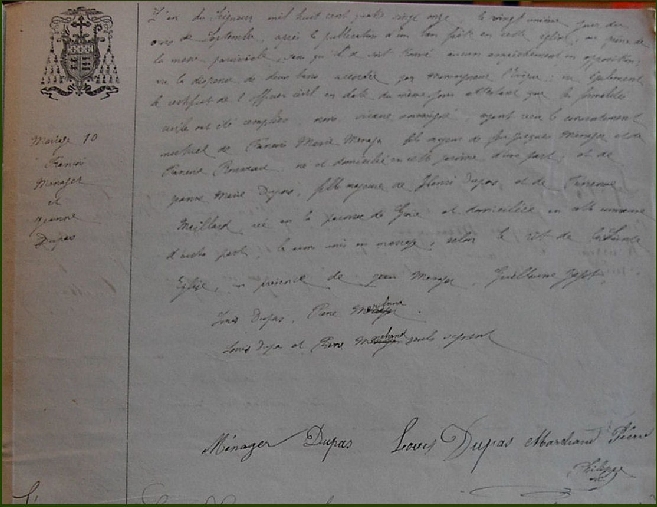 L'an du Seigneur mil huit cent quatre vingt onze le vingt unième jour du
mois de Septembre, après la publication d'un ban faite en cette église, au prône de
la messe paroissiale, sans qu'il se soit trouvé aucun empêchement ou opposition;
vu la dispense de deux bans accordée par Monseigneur l'Evêque vu également
le certificat de l'officier civil en date du même jour attestant que les formalités
civiles ont été remplies nous avons reçu le consentement
mutuel de Francois Marie Menager fils majeur de feu Jacques Menager et de
Perrine né et domicilié en cette paroisse d'une part; et de
Jeanne Marie Dupas, fille majeure de Henri Dupas et de Perrine
Maillard, née en la paroisse de et domiciliée en cette commune
d'autre part, et les avons unis en mariage, selon le rit de la Sainte
Eglise, en présence de Jean Menager, Guillaume
Louis Dupas, Pierre
Louis Dupas et Pierre seuls signent
Mariage 10
Francois
Menager
et
Jeanne
Dupas
Ménager Dupas Louis Dupas Marchand Pierre